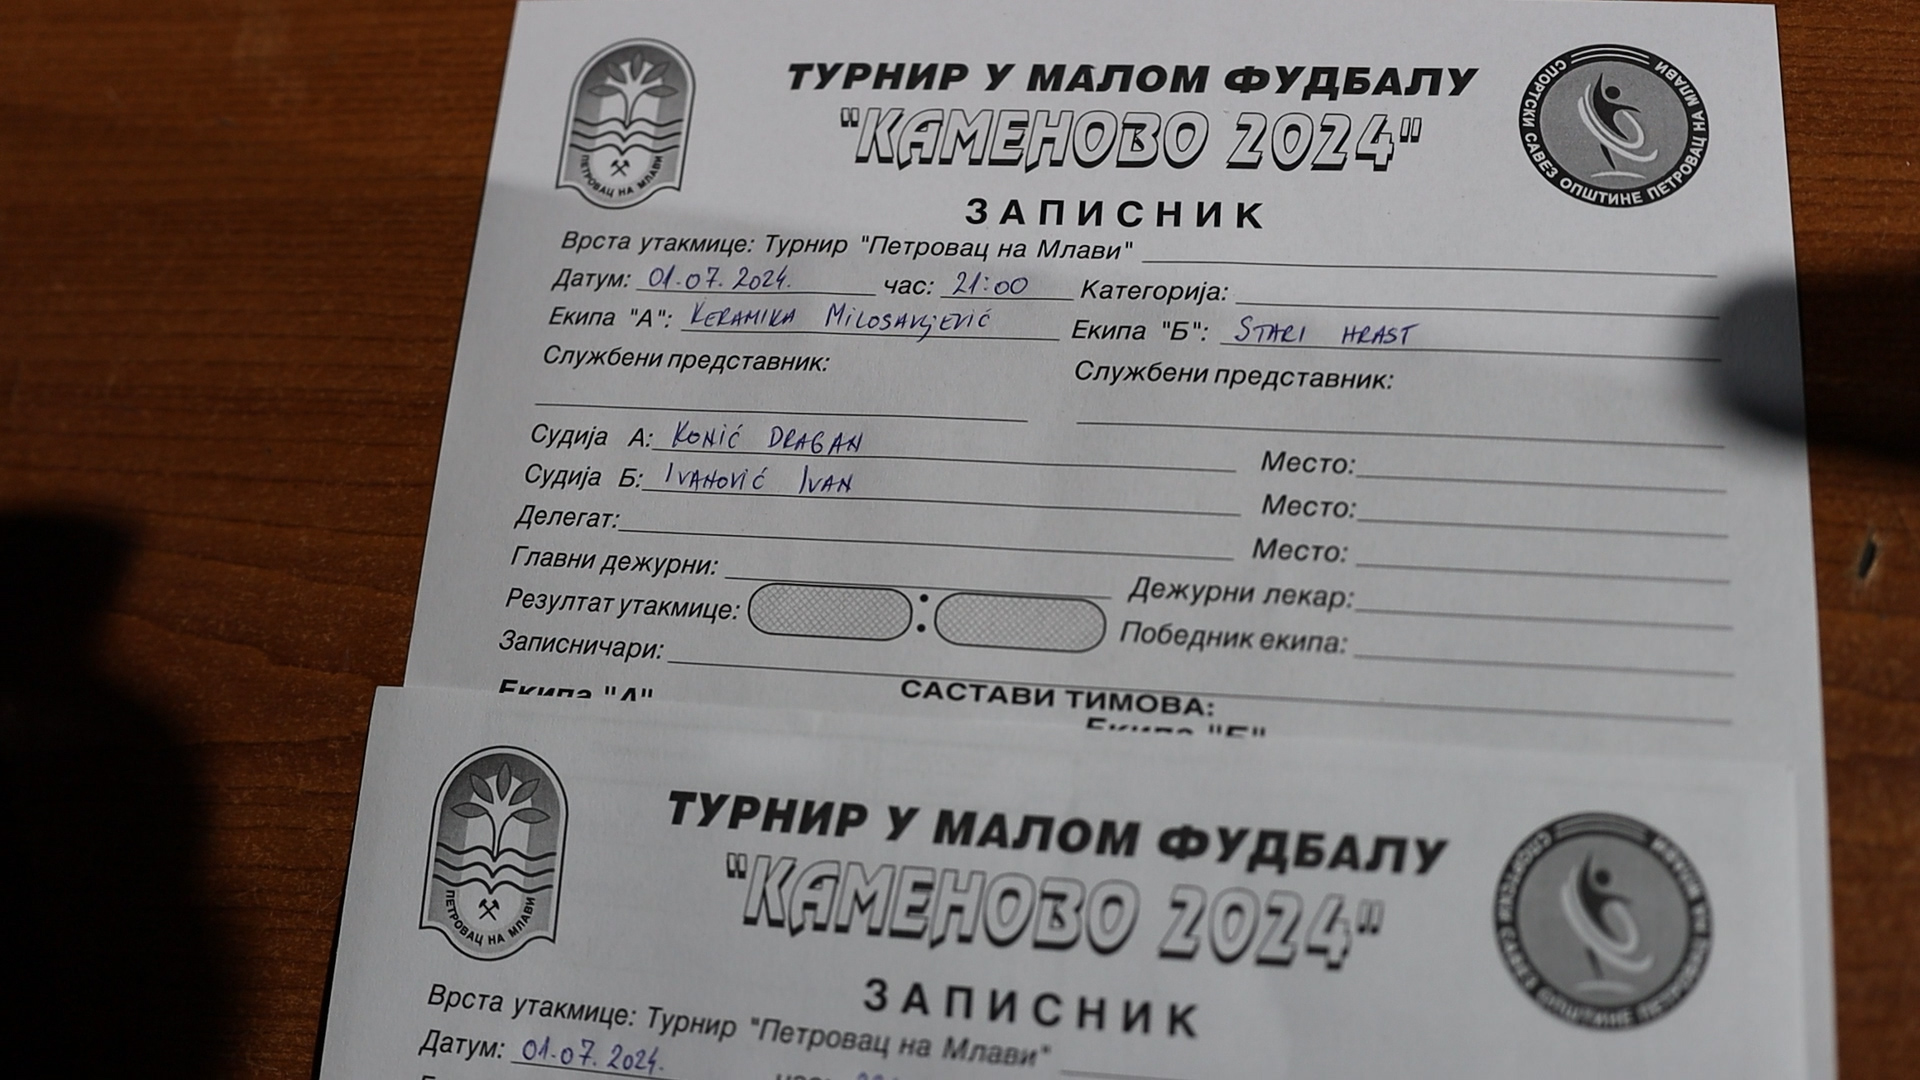 ПЕТРОВАЦ НА МЛАВИ
ТУРНИР У МАЛОМ ФУДБАЛУ
"КАМЕНОВО 2024"
СПОРТСКИ САВЕЗ ОПШТИНЕ ПЕТРОВАЦ НА МЛАВИ
ЗАПИСНИК
Врста утакмице: Турнир "Петровац на Млави"
Датум: 01.07.2024. час: 21:00 Категорија:
Екипа "А": KERAMIKA MILOSAVLJEVIĆ Екипа "Б": STARI HRAST
Службени представник: Службени представник:
Судија А: KONIĆ DRAGAN Место:
Судија Б: IVANOVIĆ IVAN Место:
Делегат: Место:
Главни дежурни: Дежурни лекар:
Резултат утакмице: : Победник екипа:
Записничари:
САСТАВИ ТИМОВА:
Екипа "А" Екипа "Б"
ПЕТРОВАЦ НА МЛАВИ
ТУРНИР У МАЛОМ ФУДБАЛУ
"КАМЕНОВО 2024"
СПОРТСКИ САВЕЗ ОПШТИНЕ ПЕТРОВАЦ НА МЛАВИ
ЗАПИСНИК
Врста утакмице: Турнир "Петровац на Млави"
Датум: 01.07.2024.